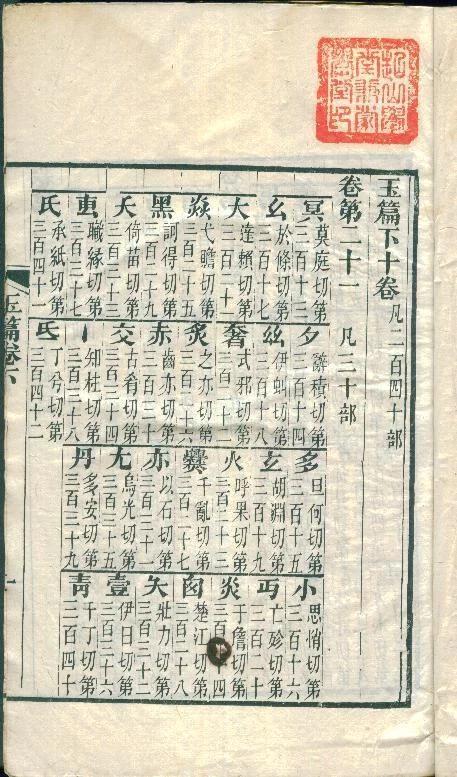 玉篇下十卷 凡二百四十部
卷第二十一 凡三十部
冥 莫庭切第三百一十三 夕 辭積切第三百一十四 多 旦何切第三百一十五 小 思悄切第三百一十六
幺 於條切第三百一十七 丝 伊虯切第三百一十八 玄 胡淵切第三百一十九 丏 亡殄切第三百二十
大 達賴切第三百二十一 奢 式邪切第三百二十二 火 呼果切第三百二十三 炎 于詹切第三百 十四
焱 弋贍切第三百二十五 炙 之亦切第三百二十六 爨 千亂切第三百二十七 囱 楚江切第三百二十八
黑 訶得切第三百二十九 赤 齒亦切第三百三十 亦 以石切第三百三十一 夨 壯力切第三百三十二
夭 倚苗切第三百三十三 交 古肴切第三百三十四 尢 烏光切第三百三十五 壹 伊日切第三百三十六
叀 職緣切第三百三十七 丶 知柱切第三百三十八 丹 多安切第三百三十九 青 千丁切第三百四十
氏 承紙切第三百四十一 氐 丁兮切第三百四十二
玉篇卷六 一